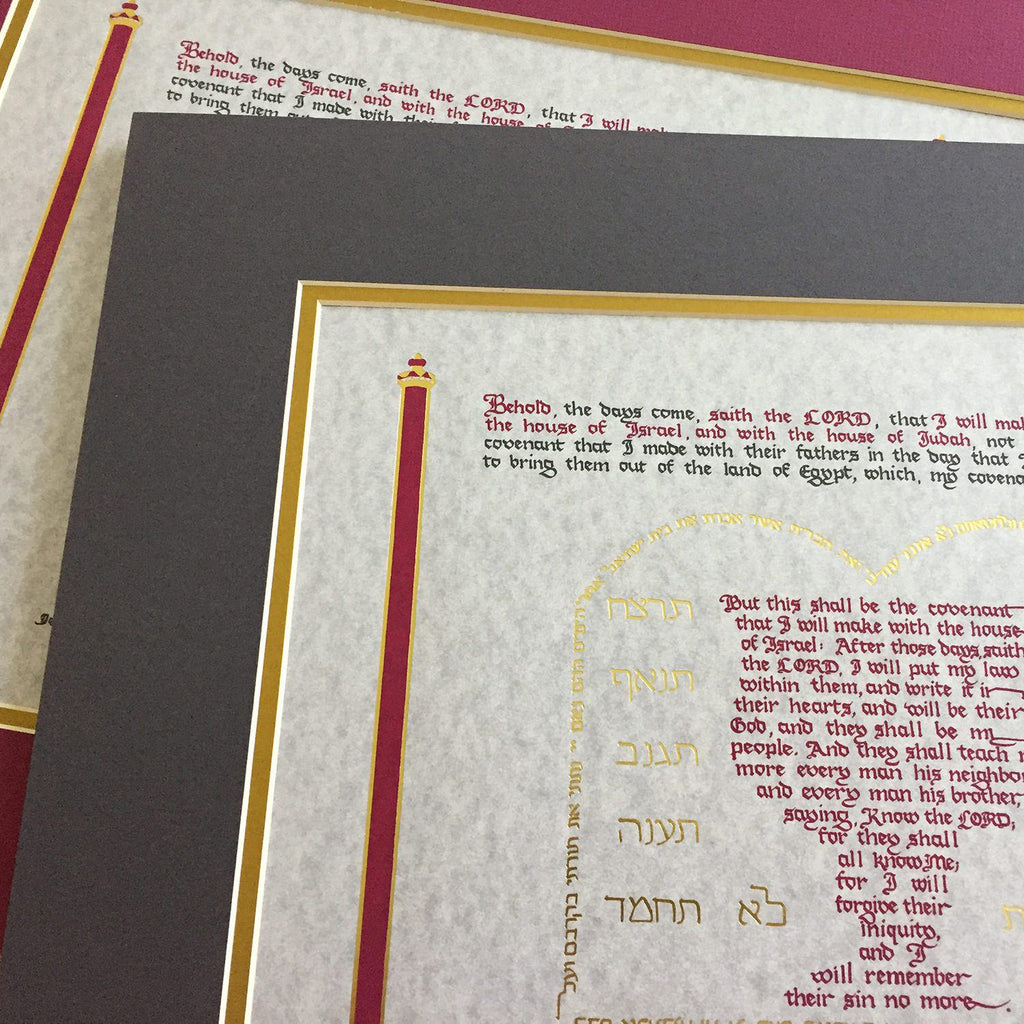 Behold, the days come, saith the LORD, that I will mak
the house of Israel, and with the house of
covenant that I made with their
to bring them out
Behold, the days come, saith the LORD, that I will mak
the house of Israel, and with the house of Judah, not
covenant that I made with their fathers in the day that I
to bring them out of the land of Egypt, which, my covena
הברית אשר אכרת את בית ישראל אחרי הימים ההם נאם יי נתתי את תורתי בקרבם ועל
תרצח
תנאף
תגנב
תענה
לא תחמד
But this shall be the covenant
that I will make with the house
of Israel: After those days, saith
the LORD, I will put my law
within them, and write it in
their hearts, and will be their
God, and they shall be m
people. And they shall teach n
more every man his neighbo
and every man his brother,
saying, Know the LORD,
for they shall
all know Me;
for I will
forgive their
iniquity,
and I
will remember
their sin no more.